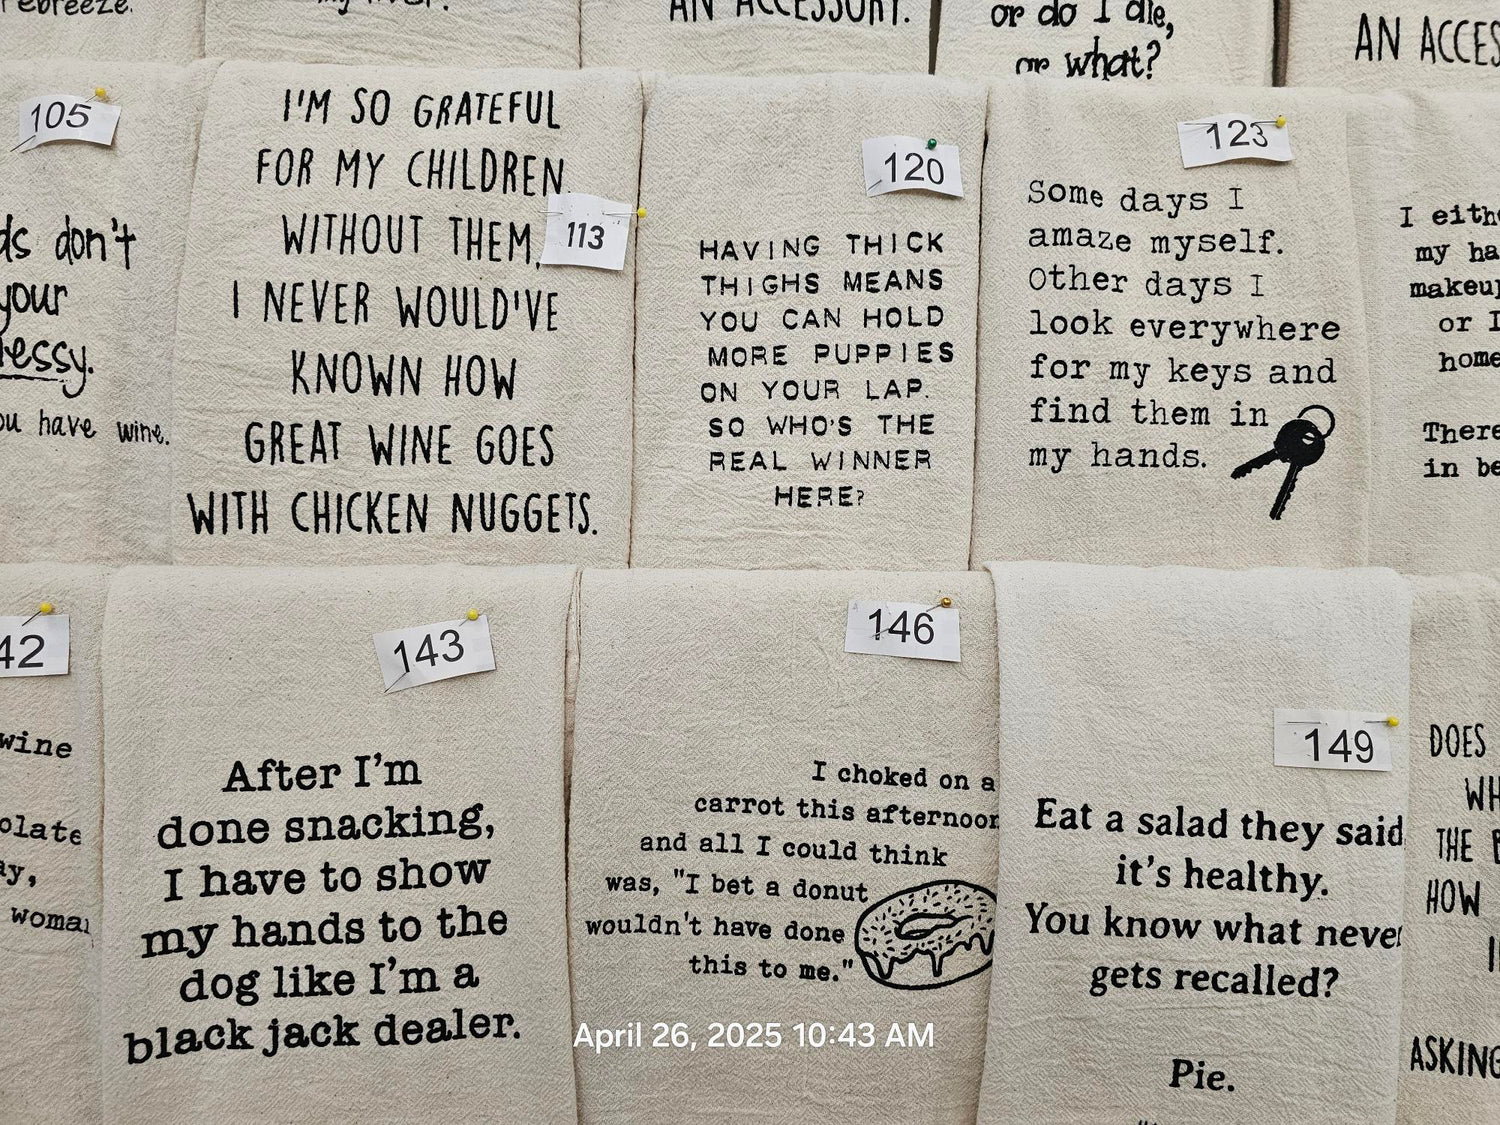 AN ACCESSORY.
or do I die,
or what?
105
don't
your
have wine.
I'M SO GRATEFUL
FOR MY CHILDREN
WITHOUT THEM,
I NEVER WOULD'VE
KNOWN HOW
GREAT WINE GOES
WITH CHICKEN NUGGETS.
113
120
HAVING THICK
THIGHS MEANS
YOU CAN HOLD
MORE PUPPIES
ON YOUR LAP.
SO WHO'S THE
REAL WINNER
HERE?
123
Some days I
amaze myself.
Other days I
look everywhere
for my keys and
find them in
my hands.
I
my
makeup
or I
home
There
in
wine
143
After I'm
done snacking,
I have to show
my hands to the
dog like I'm a
black jack dealer.
146
I choked on a
carrot this afternoon
and all I could think
was, "I bet a donut
wouldn't have done
this to me."
149
Eat a salad they said
it's healthy.
You know what never
gets recalled?
Pie.
DOES
THE
HOW
ASKING
April 26, 2025 10:43 AM